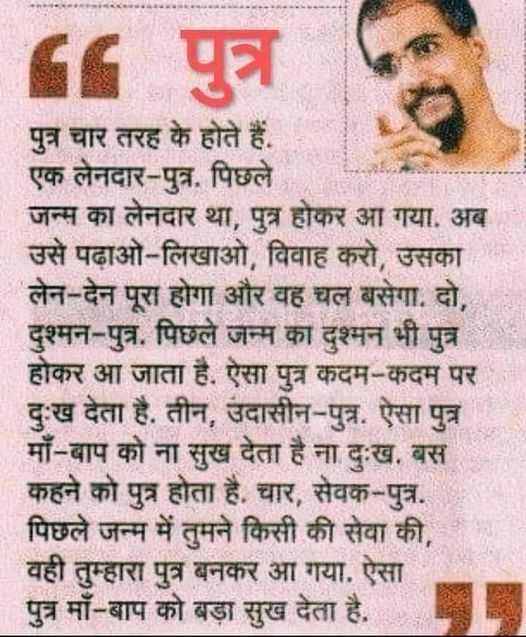 पुत्र
पुत्र चार तरह के होते हैं.
एक लेनदार-पुत्र. पिछले
जन्म का लेनदार था, पुत्र होकर आ गया. अब
उसे पढ़ाओ-लिखाओ, विवाह करो, उसका
लेन-देन पूरा होगा और वह चल बसेगा. दो,
दुश्मन-पुत्र. पिछले जन्म का दुश्मन भी पुत्र
होकर आ जाता है. ऐसा पुत्र कदम-कदम पर
दुःख देता है. तीन, उदासीन-पुत्र. ऐसा पुत्र
माँ-बाप को ना सुख देता है ना दुःख. बस
कहने को पुत्र होता है. चार, सेवक-पुत्र.
पिछले जन्म में तुमने किसी की सेवा की,
वही तुम्हारा पुत्र बनकर आ गया. ऐसा
पुत्र माँ-बाप को बड़ा सुख देता है.